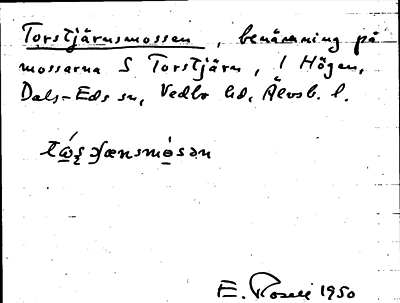 Torstjärnsmossen, benämning på
mossarna S Torstjärn, i Högen,
Dals-Eds sn, Vedbo hd, Älvsb. l.
E. Rosell 1950